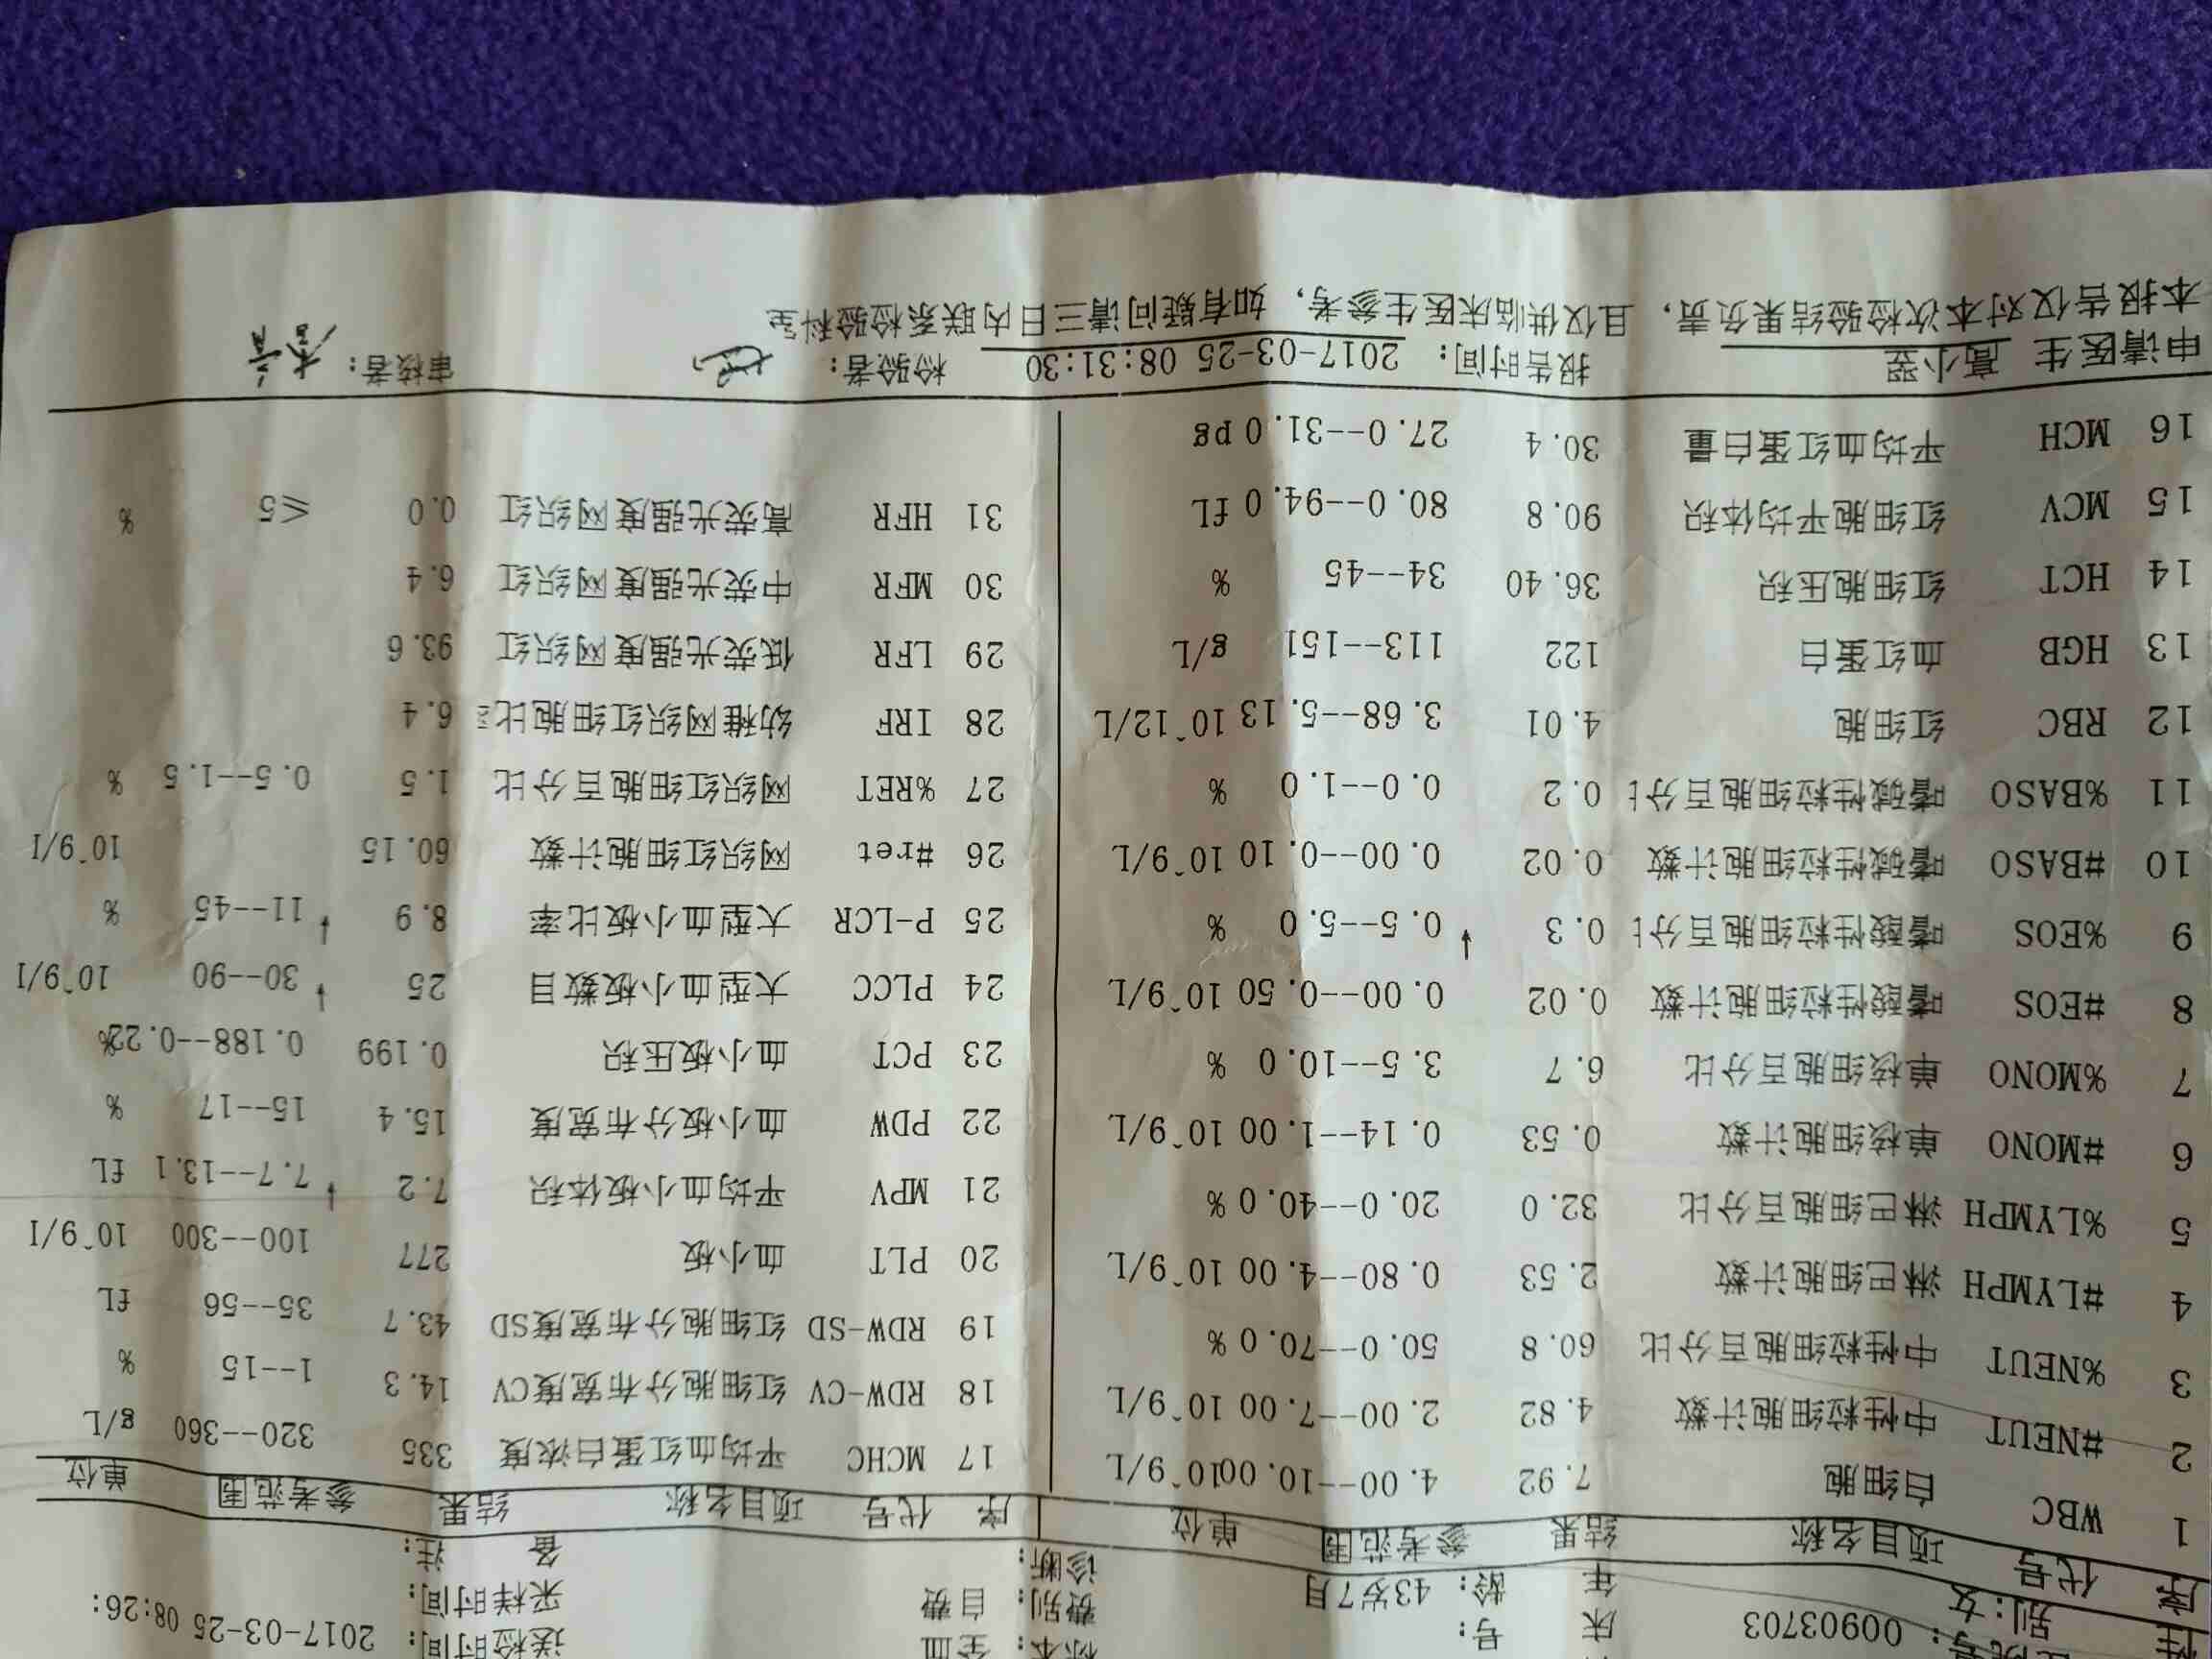 00903703 床 号： 标本： 全血 送检时间： 2017-03-25 08:26:
性 别：女 年 龄： 43岁7月 费别： 自费 采样时间：
诊断： 备 注：
序 代号 项目名称 结果 参考范围 单位 序 代号 项目名称 结果 参考范围 单位
1 WBC 白细胞 7.92 4.00--10.00 10^9/L 17 MCHC 平均血红蛋白浓度 335 320--360 g/L
2 #NEUT 中性粒细胞计数 4.82 2.00--7.00 10^9/L 18 RDW-CV 红细胞分布宽度CV 14.3 1--15 %
3 %NEUT 中性粒细胞百分比 60.8 50.0--70.0 % 19 RDW-SD 红细胞分布宽度SD 43.7 35--56 fL
4 #LYMPH 淋巴细胞计数 2.53 0.80--4.00 10^9/L 20 PLT 血小板 277 100--300 10^9/l
5 %LYMPH 淋巴细胞百分比 32.0 20.0--40.0 % 21 MPV 平均血小板体积 7.2 ↓ 7.7--13.1 fL
6 #MONO 单核细胞计数 0.53 0.14--1.00 10^9/L 22 PDW 血小板分布宽度 15.4 15--17 %
7 %MONO 单核细胞百分比 6.7 3.5--10.0 % 23 PCT 血小板压积 0.199 0.188--0.22 %
8 #EOS 嗜酸性粒细胞计数 0.02 0.00--0.50 10^9/L 24 PLCC 大型血小板数目 25 ↓ 30--90 10^9/l
9 %EOS 嗜酸性粒细胞百分 0.3 ↓ 0.5--5.0 % 25 P-LCR 大型血小板比率 8.9 ↓ 11--45 %
10 #BASO 嗜碱性粒细胞计数 0.02 0.00--0.10 10^9/L 26 #ret 网织红细胞计数 60.15 10^9/l
11 %BASO 嗜碱性粒细胞百分 0.2 0.0--1.0 % 27 %RET 网织红细胞百分比 1.5 0.5--1.5 %
12 RBC 红细胞 4.01 3.68--5.13 10^12/L 28 IRF 幼稚网织红细胞比 6.4
13 HGB 血红蛋白 122 113--151 g/L 29 LFR 低荧光强度网织红 93.6
14 HCT 红细胞压积 36.40 34--45 % 30 MFR 中荧光强度网织红 6.4
15 MCV 红细胞平均体积 90.8 80.0--94.0 fL 31 HFR 高荧光强度网织红 0.0 ≤5 %
16 MCH 平均血红蛋白量 30.4 27.0--31.0 pg
申请医生 高小翠 报告时间： 2017-03-25 08:31:30 检验者： 审核者：
本报告仅对本次检验结果负责，且仅供临床医生参考，如有疑问请三日内联系检验科室